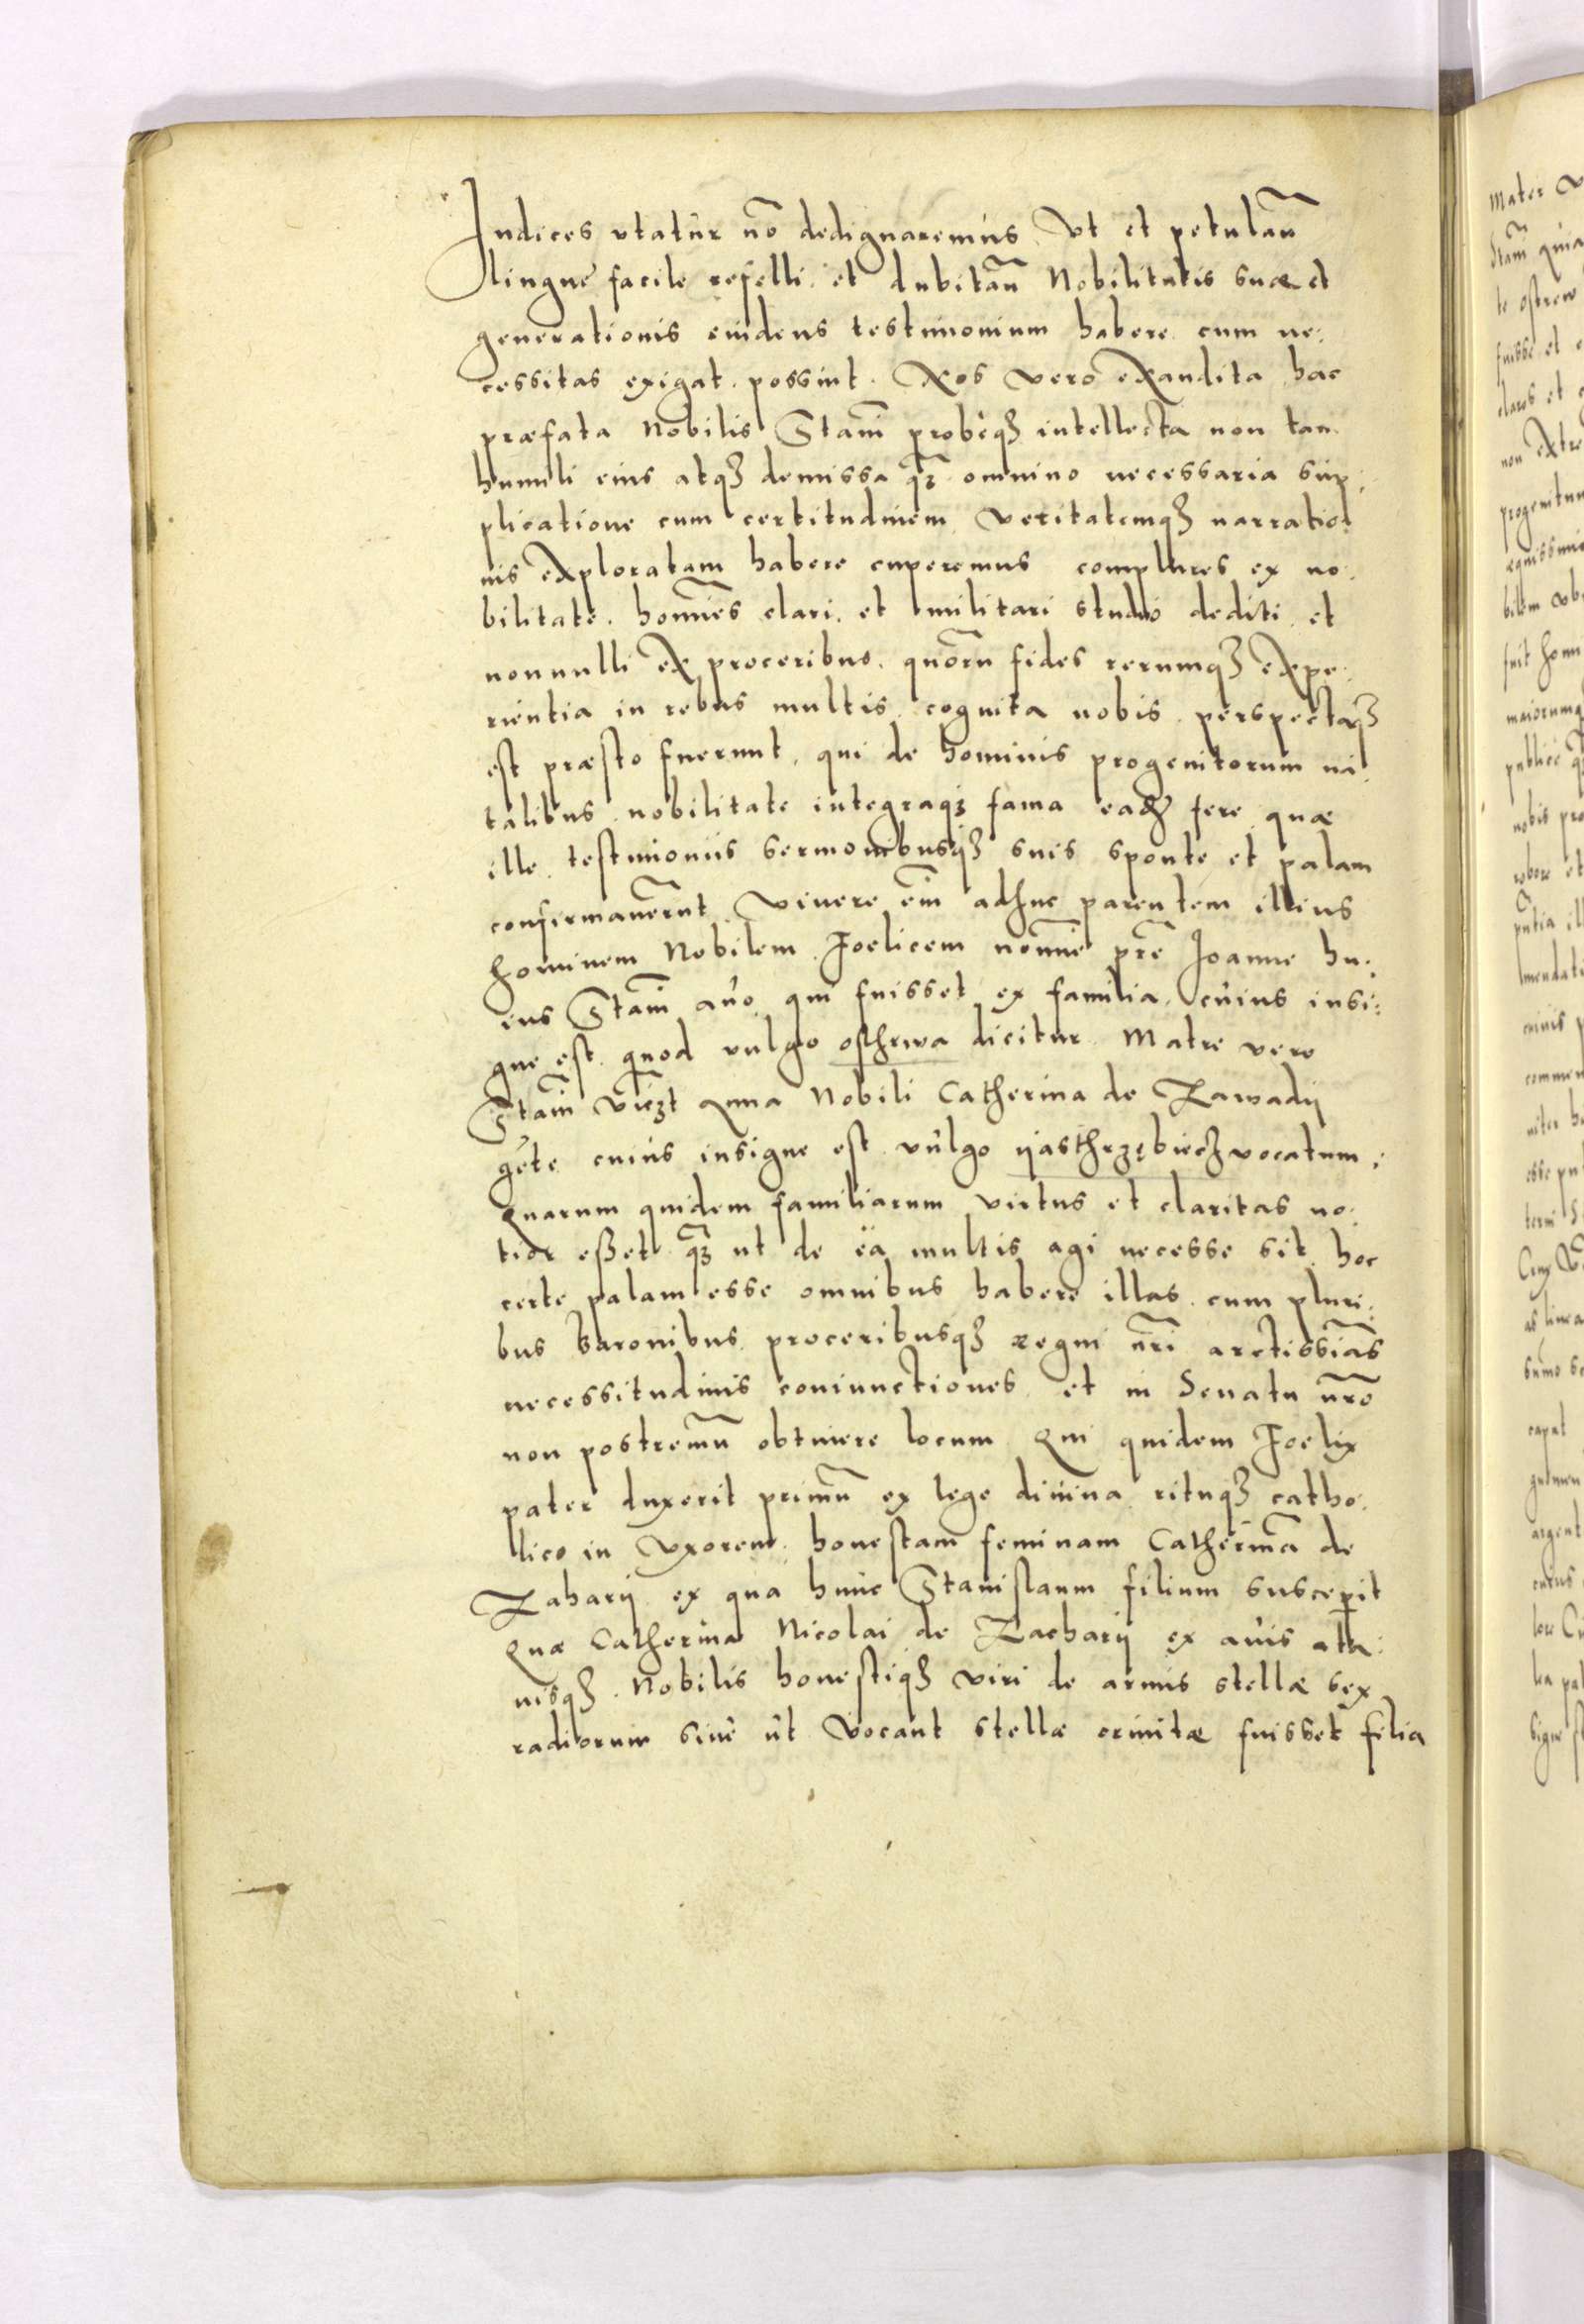 Iudices vtatur nō dedignaremus Vt et petulān
lingue facile refelli et dubitān Nobilitatis suæ et
generationis euidens testimonium habere cum ne:
cessitas exigat possint. Nos vero exaudita hac
præfata Nobilis Stanī probeqȝ intellecta non tam
humili eius atqȝ demissa qȝ̄ omnino necessaria sup:
plicatione cum certitudinem veritatemqȝ narratio:
nis exploratam habere cuperemus complures ex no:
bilitate homīes clari et militari studio dediti et
nonnulli ex proceribus quorū fides rerumqȝ expe:
rientia in rebus multis cognita nobis perspectaqȝ
est præsto fuerunt, qui de hominis progenitorum na
talibus nobilitate integraqȝ fama eadē fere quæ
ille testimoniis sermonibusqȝ suis sponte et palam
confirmauer̄nt Viuere eīm adhuc parentem illius
hominem Nobilem Foelicem nomīe pr̄e Ioanne hu:
ius Stanī auo qui fuisset ex familia cuius insi:
gne est quod vulgo osthrwa dicitur Matre vero
Stanī Anna Nobili Catherina de Zawadij
gēte cuius insigne est vulgo ijasthrzębiecz vocatum:
Quarum quidem familiarum virtus et claritas no:
tior eßet qȝ̄ ut de ea multis agi necesse sit hoc
certe palam esse omnibus habere illas cum pluri:
bus baronibus proceribusqȝ regni nr̄i arctissiās
necessitudinis coniunctiones et in Senatu nr̄o
non postremū obtinere locum Qui quidem Foelix
pater duxerit primū ex lege diuina rituqȝ catho:
lico in Vxorem honestam feminam Catherinā de
Zaharij ex qua hunc Stanislaum filium susceperit
Quæ Catherina Nicolai de Zacharij ex auis ata:
uisqȝ Nobilis honestiqȝ viri de armis stellæ sex
radiorum siue ut vocant stellæ crinitæ fuisset filia